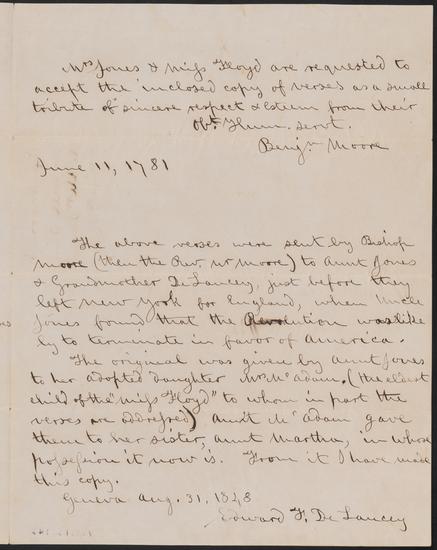 Mrs Jones & Miss Floyd are requested to
accept the inclosed copy of verses as a small
tribute of sincere respect & esteem from their
Obt. Hum. servt.
Benjn. Moore
June 11, 1781
The above verses were sent by Bishop
Moore (then the Rev. Mr Moore) to Aunt Jones
& Grandmother De Lancey, just before they
left New York for England, when Uncle
Jones found that the Revolution was like
ly to terminate in favor of America.
The original was given by Aunt Jones
to her adopted daughter Mrs McAdam. (the eldest
child of the "Miss Floyd" to whom in part the
verses are addressed) Aunt Mc Adam gave
them to her sister, Aunt Martha, in whose
possession it now is. From it I have made
this copy.
Geneva Aug. 31, 1848
Edward F. De Lancey